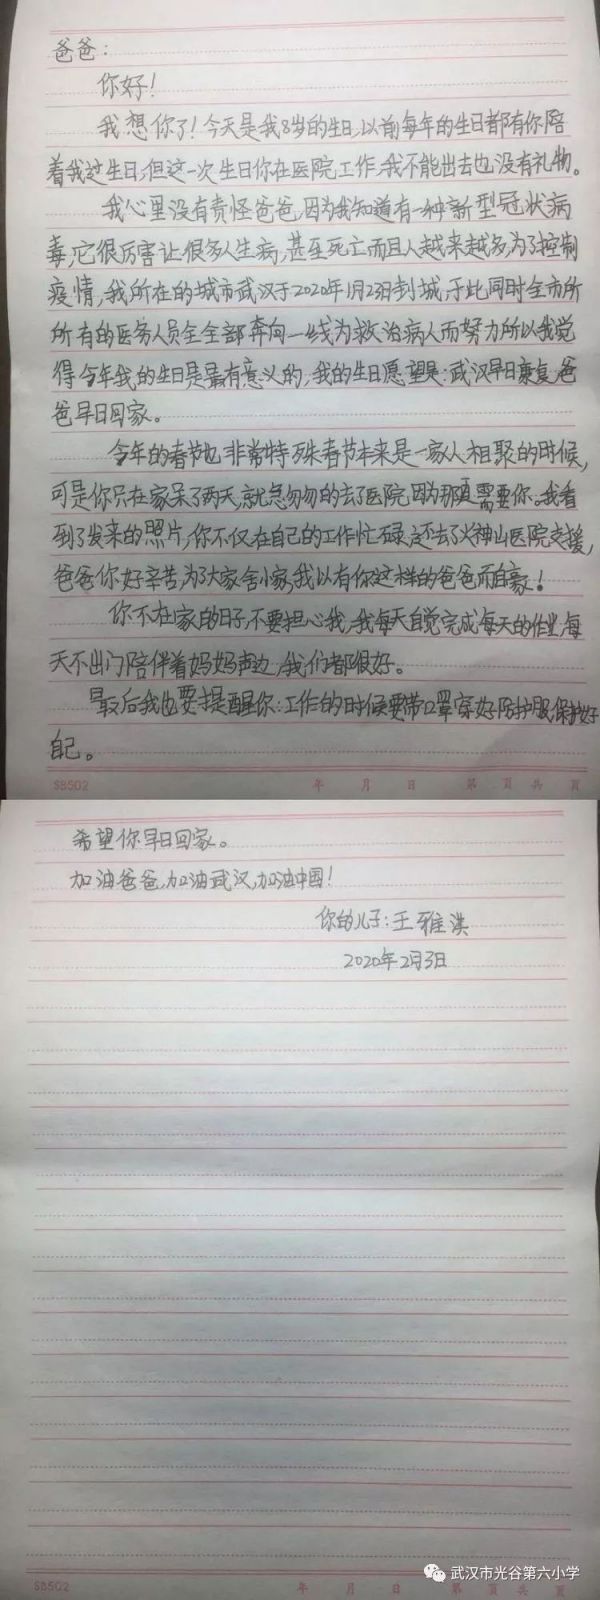 爸爸:
你好!
我想你了!今天是我8岁的生日,以前每年的生日都有你陪
着我过生日,但这一次生日你在医院工作,我不能出去也没有礼物。
我心里没有责怪爸爸,因为我知道有一种新型冠状病
毒,它很厉害让很多人生病,甚至死亡而且人越来越多,为了控制
疫情,我所在的城市武汉于2020年1月23日封城,于此同时全市所
所有的医务人员全全部奔向一线为救治病人而努力所以我觉
得今年我的生日是最有意义的,我的生日愿望是:武汉早日康复,爸
爸早日回家。
今年的春节也非常特殊春节本来是一家人相聚的时候,
可是你只在家呆了两天,就急匆匆的去了医院,因为那更需要你。我看
到了发来的照片,你不仅在自己的工作忙碌,还去了火神山医院支援,
爸爸你好辛苦,为了大家舍小家,我以有你这样的爸爸而自豪!
你不在家的日子,不要担心我,我每天自觉完成每天的作业,每
天不出门陪伴着妈妈声边,我们都很好。
最后我也要提醒你:工作的时候要带口罩穿好防护服,保护好
自己。
SB502 年 月 日 第 页 共 页
希望你早日回家。
加油爸爸,加油武汉,加油中国!
你的儿子:王雅淇
2020年2月3日
武汉市光谷第六小学
SB502 年 月 日 第 页 共 页